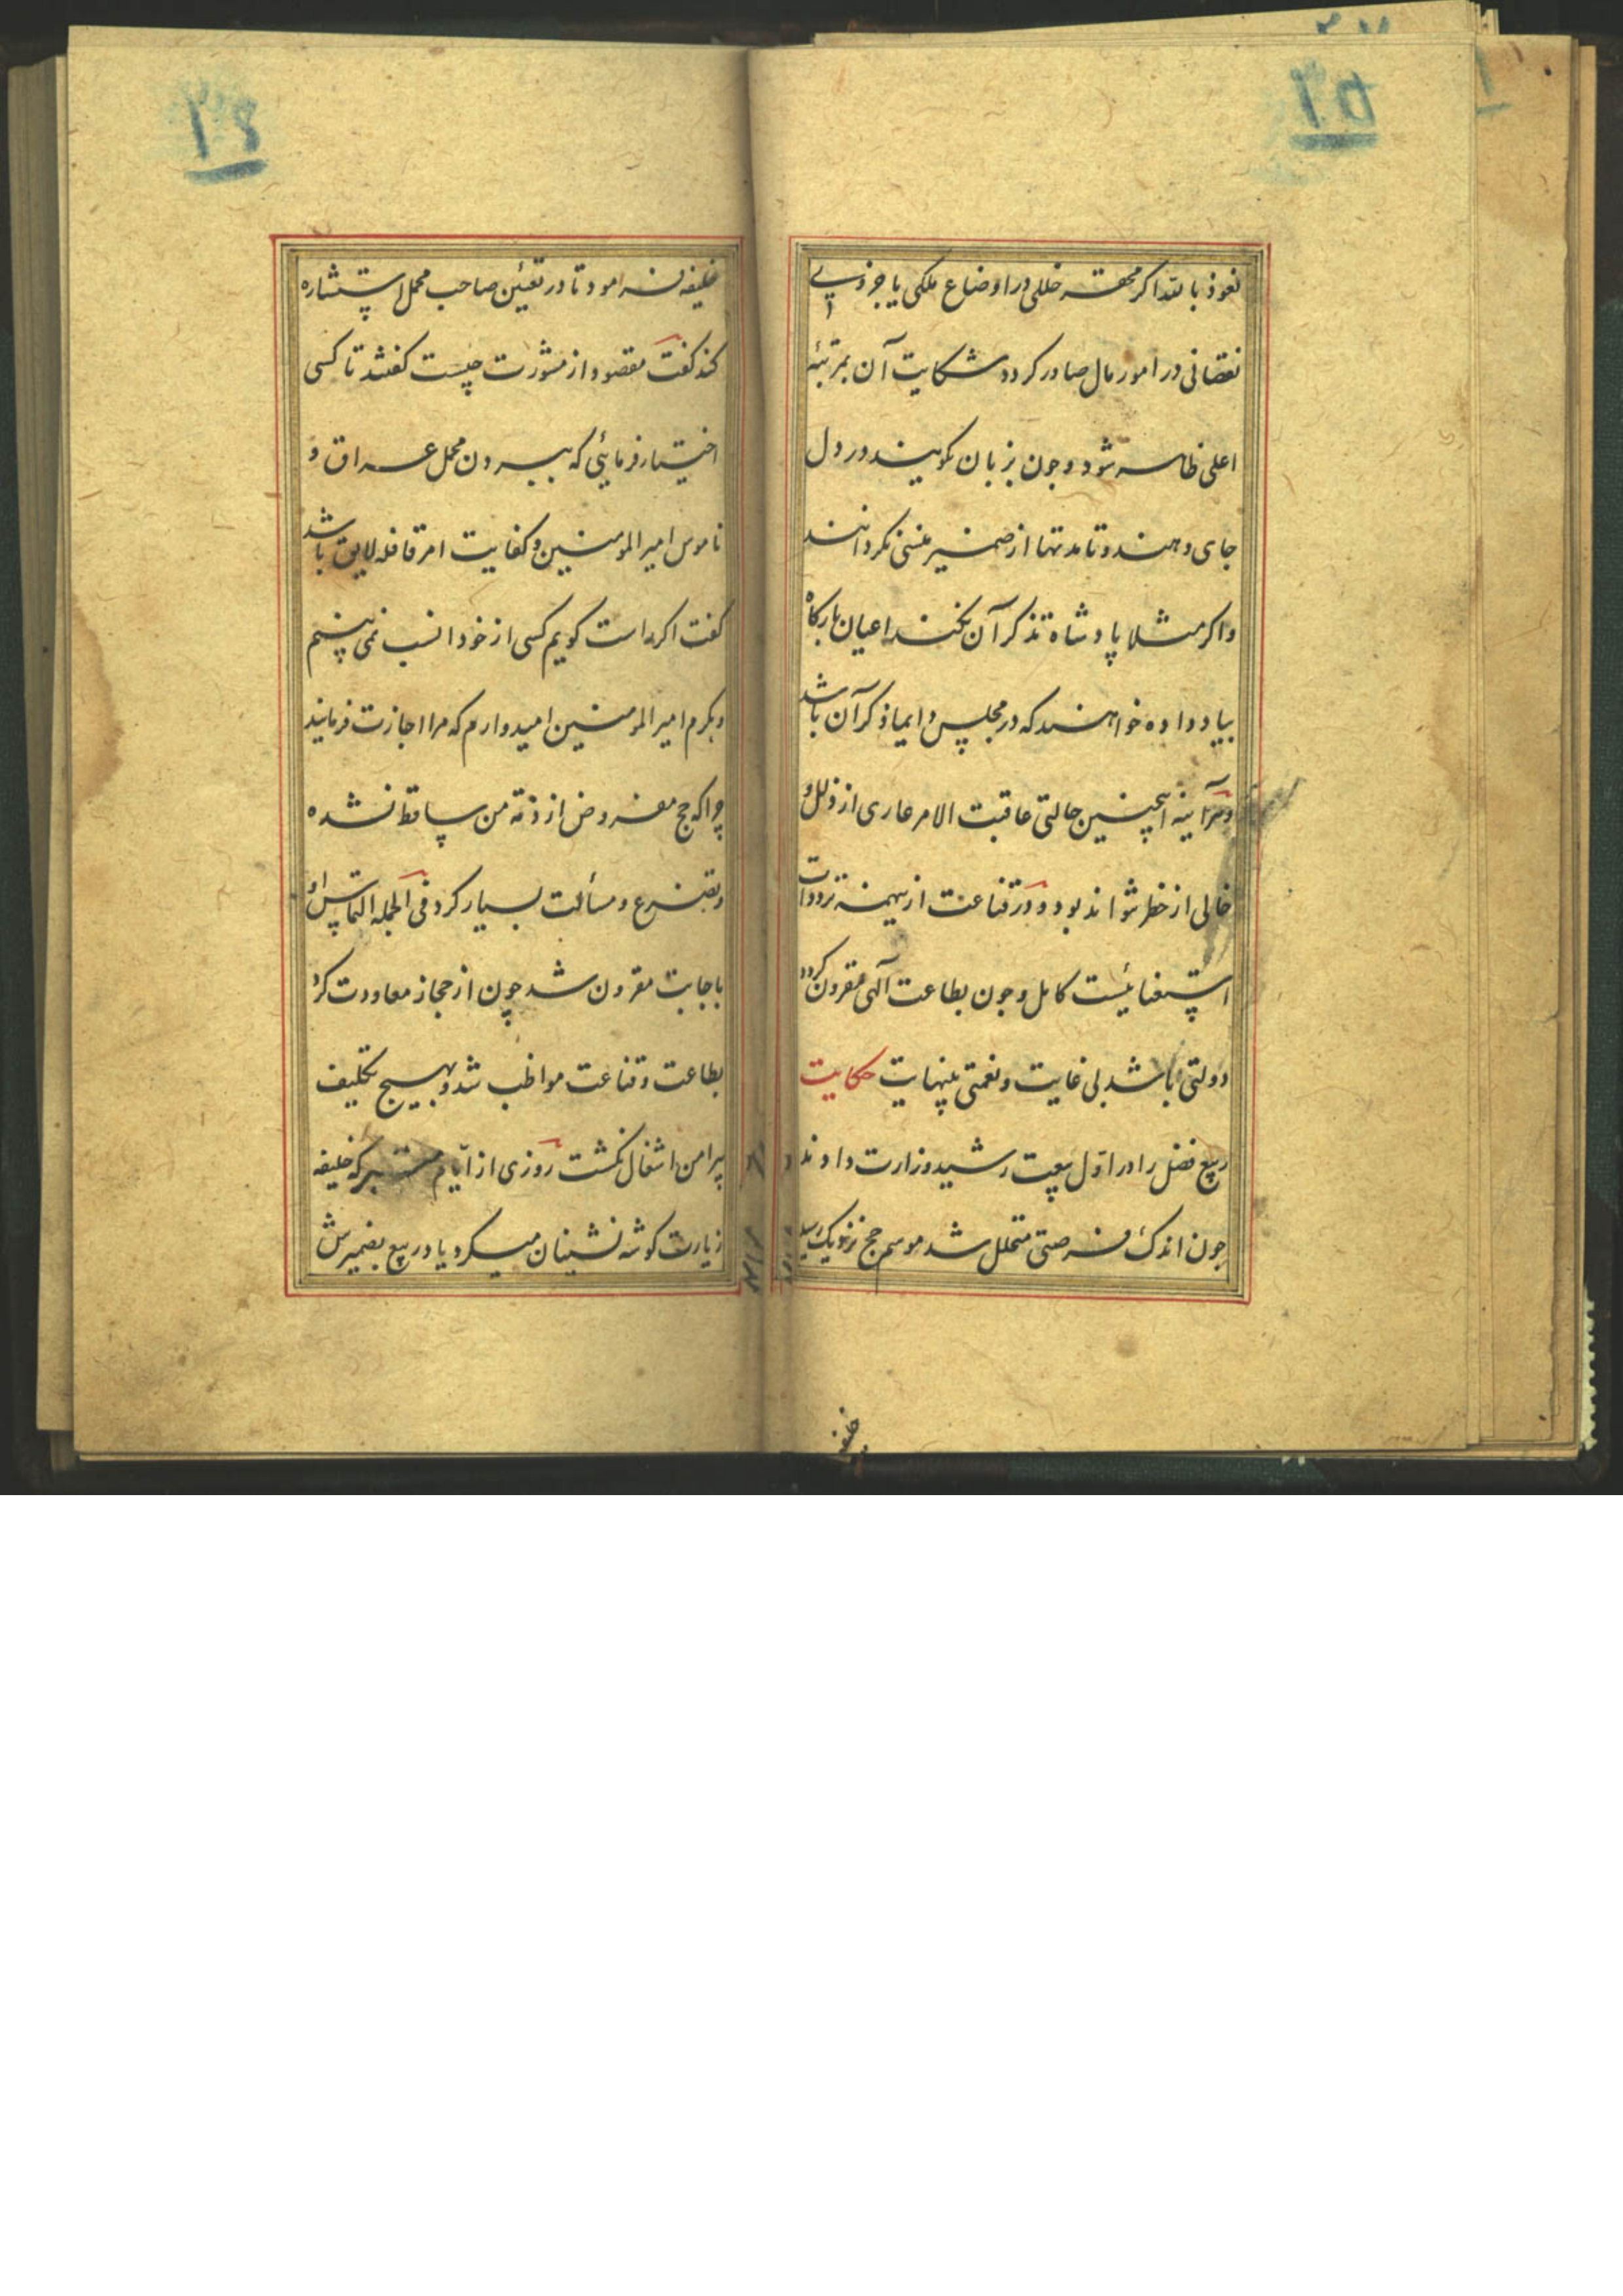 نعوذ بالله اکر محقـر خللی در اوضاع ملکی یا جزوی
نقصانی در امور مال صادر کردد شکایت آن بمرتبۀ
اعلی ظاهر شود و چون بزبان نکویند در دل
جای دهند و تا مدتها از ضمیر منسی نکردانند
و اکر مثلا پادشاه تذکر آن نکند اعیان بارکاه
بیاد داده خواهند که در مجلس دایما ذکر آن باشد
و هرآینه اینچنین حالتی عاقبت الامر عاری از ذلل و
خالی از خطر نتواند بود و در قناعت از همه ترددات
استغنائیست کامل و چون بطاعت آلهی مقرون کردد
دولتی باشد بی غایت و نعمتی بینهایت حکایت
ربیع فضل را در اول بیعت رشید وزارت دادند و
چون اندک فرصتی متخلل شد موسم حج نزدیک رسید
خلیفه
خلیفه فرمود تا در تعیین صاحب محمل استشاره
کند کفت مقصود از مشورت چیست کفتند تا کسی
اختیار فرمایئی که ببیرون محمل عراق و
ناموس امیر المومنین و کفایت امر قافله لایق باشد
کفت اکر راست کویم کسی از خود انسب نمی بینم
و بکرم امیر المومنین امیدوارم که مرا اجازت فرمایند
چرا که حج مفروض از ذمۀ من ساقط نشده
و بتضرع و مسألت بسیار کرد فی الجمله التماس او
باجابت مقرون شد چون از حجاز معاودت کرد
بطاعت و قناعت مواظب شد و بهیچ تکلیف
پیرامن اشغال نکشت روزی از ایام متبرکه خلیفه
زیارت کوشه نشینان میکرد یاد ربیع بضمیرش